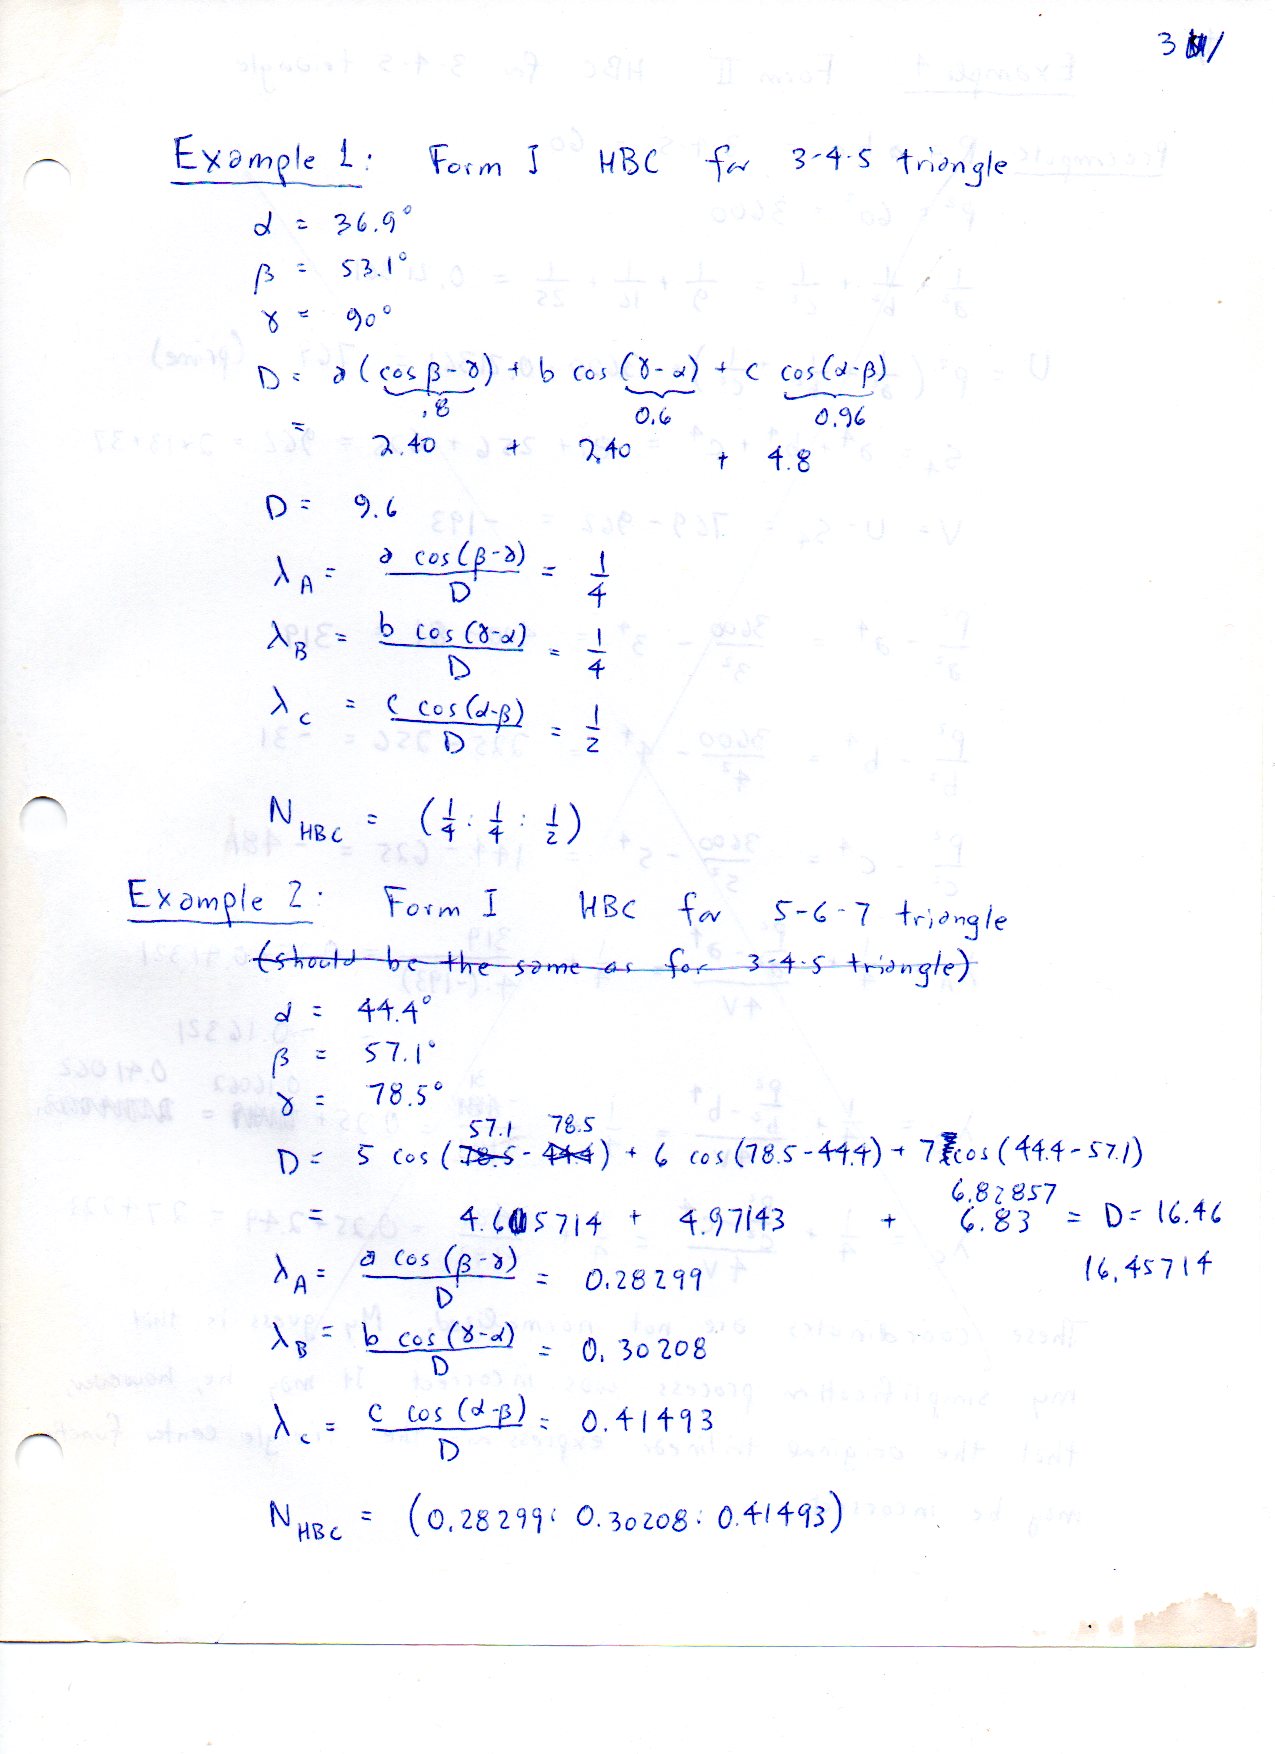 3 /
Example 1: Form I HBC for 3-4-5 triangle
α = 36.9°
β = 53.1°
γ = 90°
D = a (cos β-γ) + b cos (γ-α) + c cos(α-β)
.8 0.6 0.96
= 2.40 + 2.40 + 4.8
D = 9.6
λA = a cos(β-γ) / D = 1/4
λB = b cos(γ-α) / D = 1/4
λc = c cos(α-β) / D = 1/2
NHBC = (1/4 : 1/4 : 1/2)
Example 2: Form I HBC for 5-6-7 triangle
(should be the same as for 3-4-5 triangle)
α = 44.4°
β = 57.1°
γ = 78.5°
57.1 78.5
D = 5 cos (78.5 - 44.4) + 6 cos (78.5-44.4) + 7 cos (44.4-57.1)
6.82857
= 4.65714 + 4.97143 + 6.83 = D = 16.46
16.45714
λA = a cos (β-γ) / D = 0.28299
λB = b cos (γ-α) / D = 0.30208
λc = c cos (α-β) / D = 0.41493
NHBC = (0.28299 : 0.30208 : 0.41493)